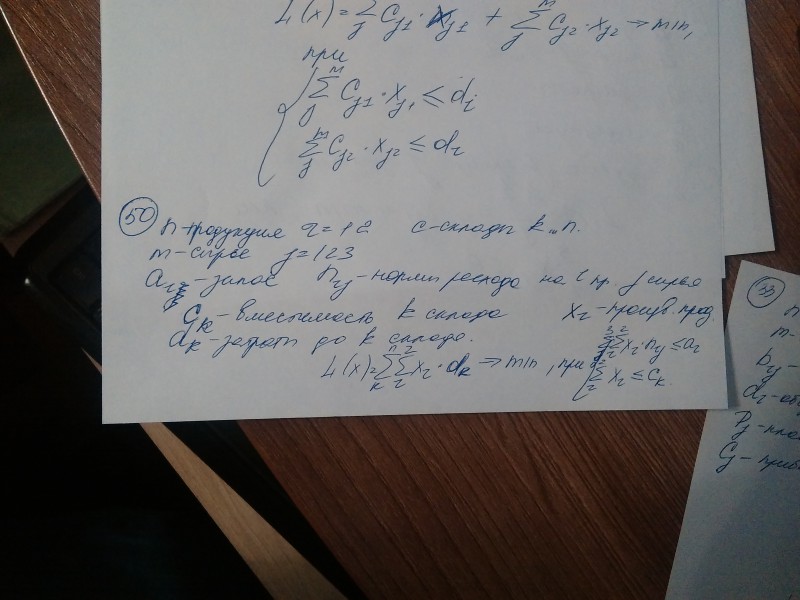 L(x) = Σ_j C_j1 · x_j1 + Σ_j^m C_j2 · x_j2 → min,
при
Σ_j^m C_j1 · x_j1 ≤ d_i
Σ_j^m C_j2 · x_j2 ≤ d_i
50 n-продукция i = 1,2 c-склады k...n.
m-сырье j = 123
a_i - запас n_ij - нормы расхода на i пр. j сырья
C_k - вместимость k склада x_i - произв. прод
d_k - затраты до k склада.
L(x) = Σ_k^n Σ_i^2 x_i · d_k → min, при Σ_j^3 Σ_i^2 x_i · n_ij ≤ a_i
Σ_i^2 x_i ≤ C_k.
33
n
m-
b_ij -
d_i - объ
P_j - пла
C_j - приб